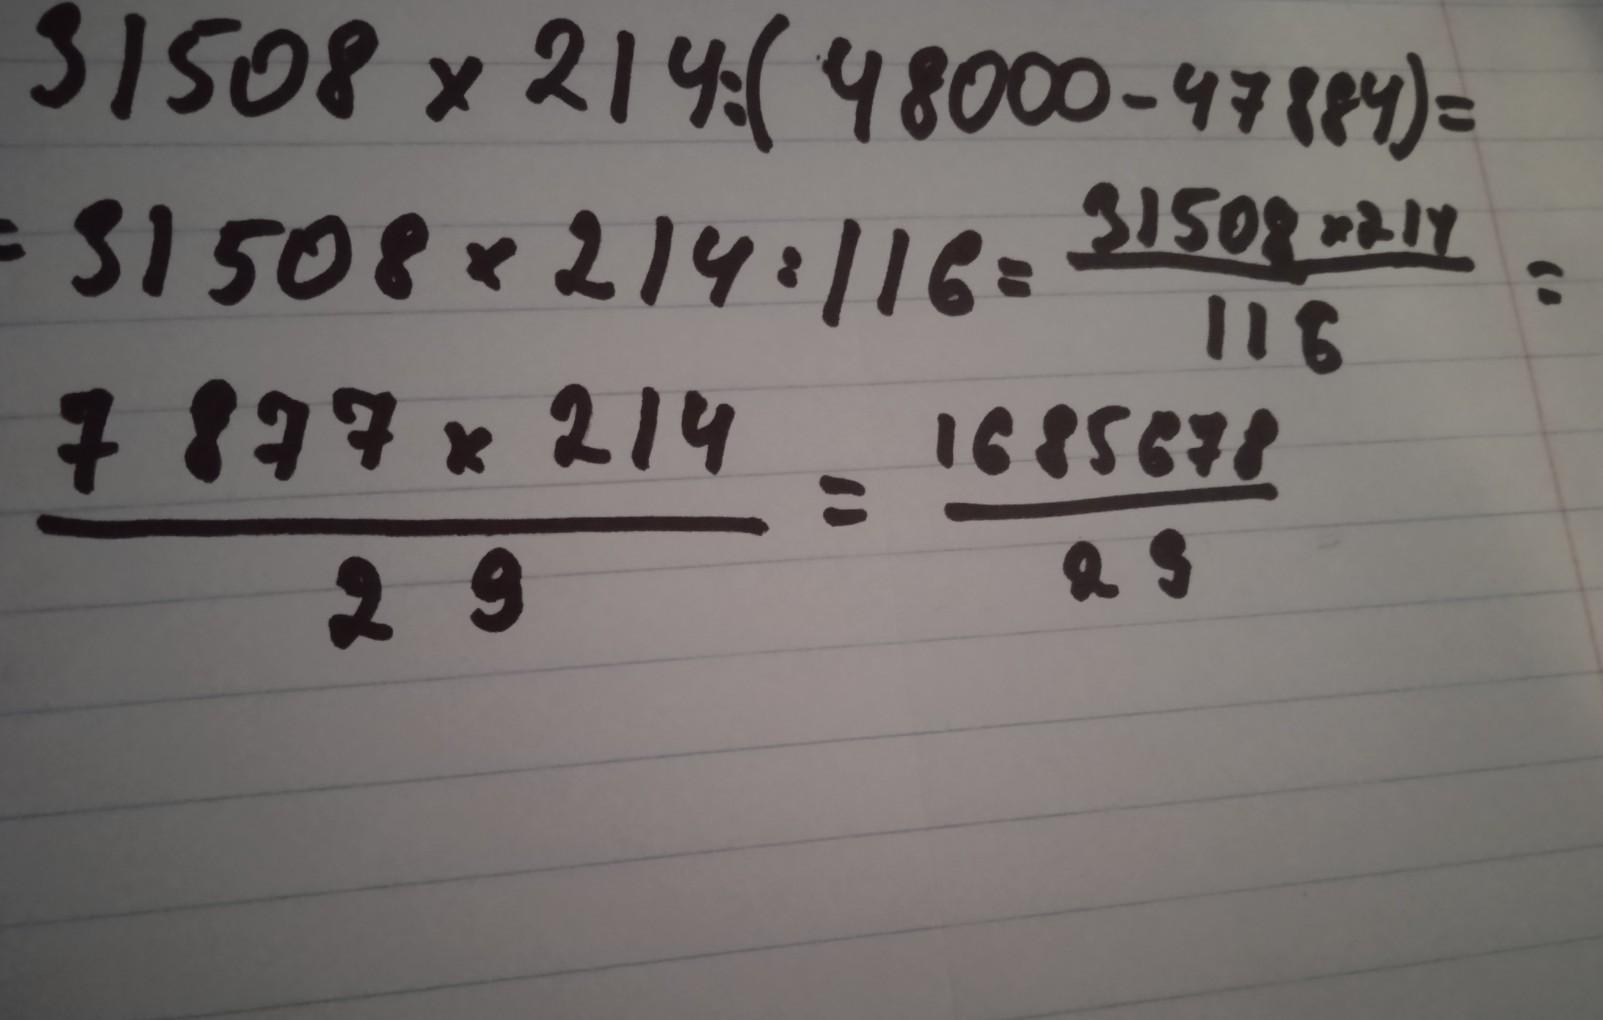 31508 x 214:( 48000-47884)=
= 31508 x 214:116= 31508 x214/116 =
7877 x 214/29 = 1685678/29